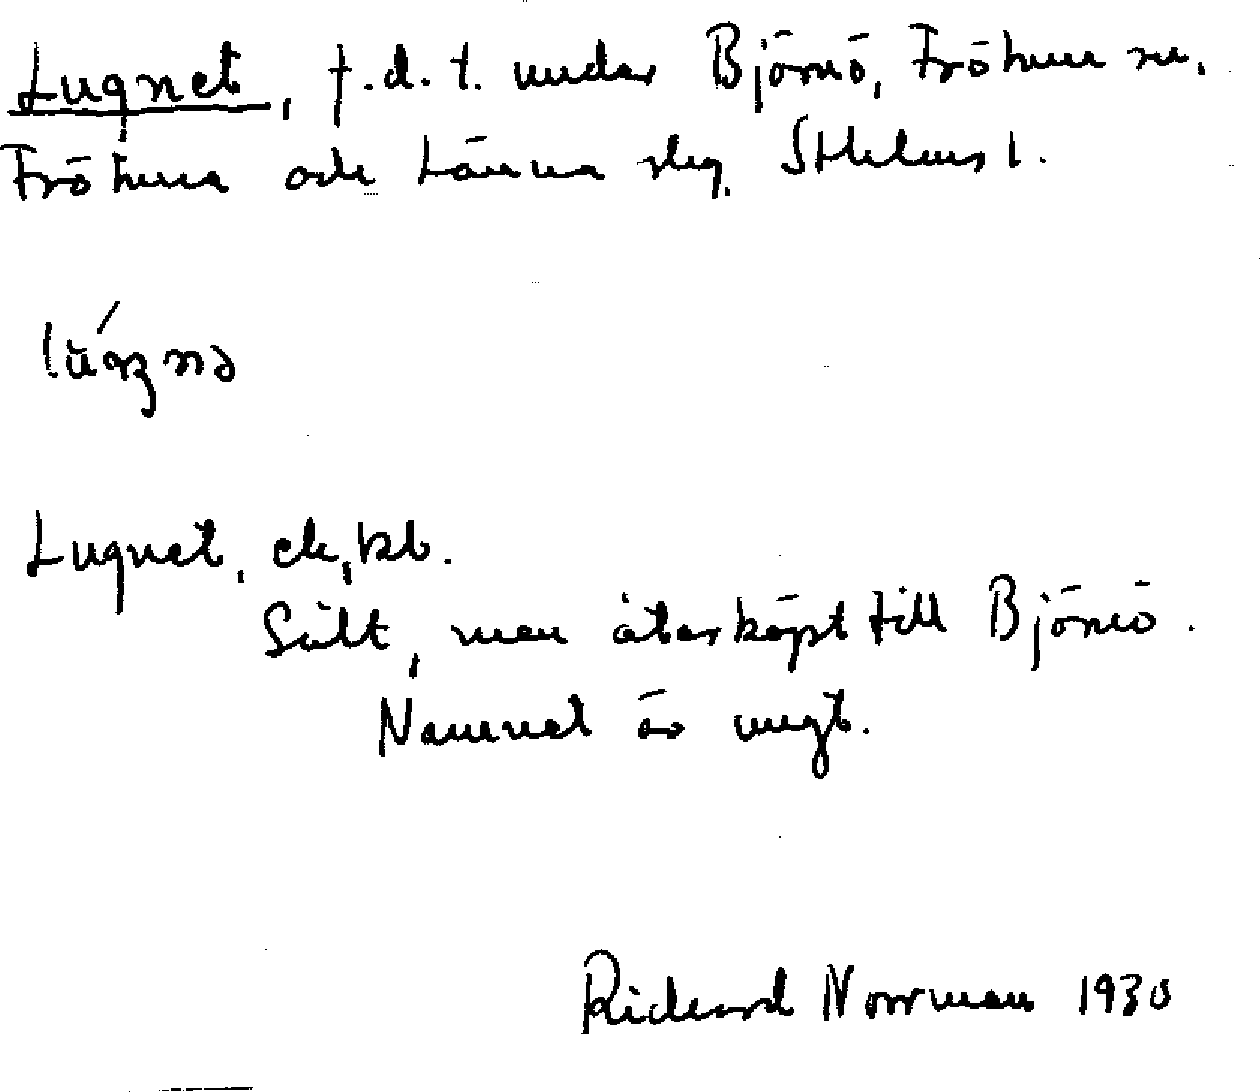 Lugnet, f.d.t. under Björnö, Frötuna sn,
Frötuna och Länna slg. Sthlms l.
Lugnet, ek, kb.
Sålt, men återköpt till Björnö.
Namnet är nugt.
Richard Norrman 1930